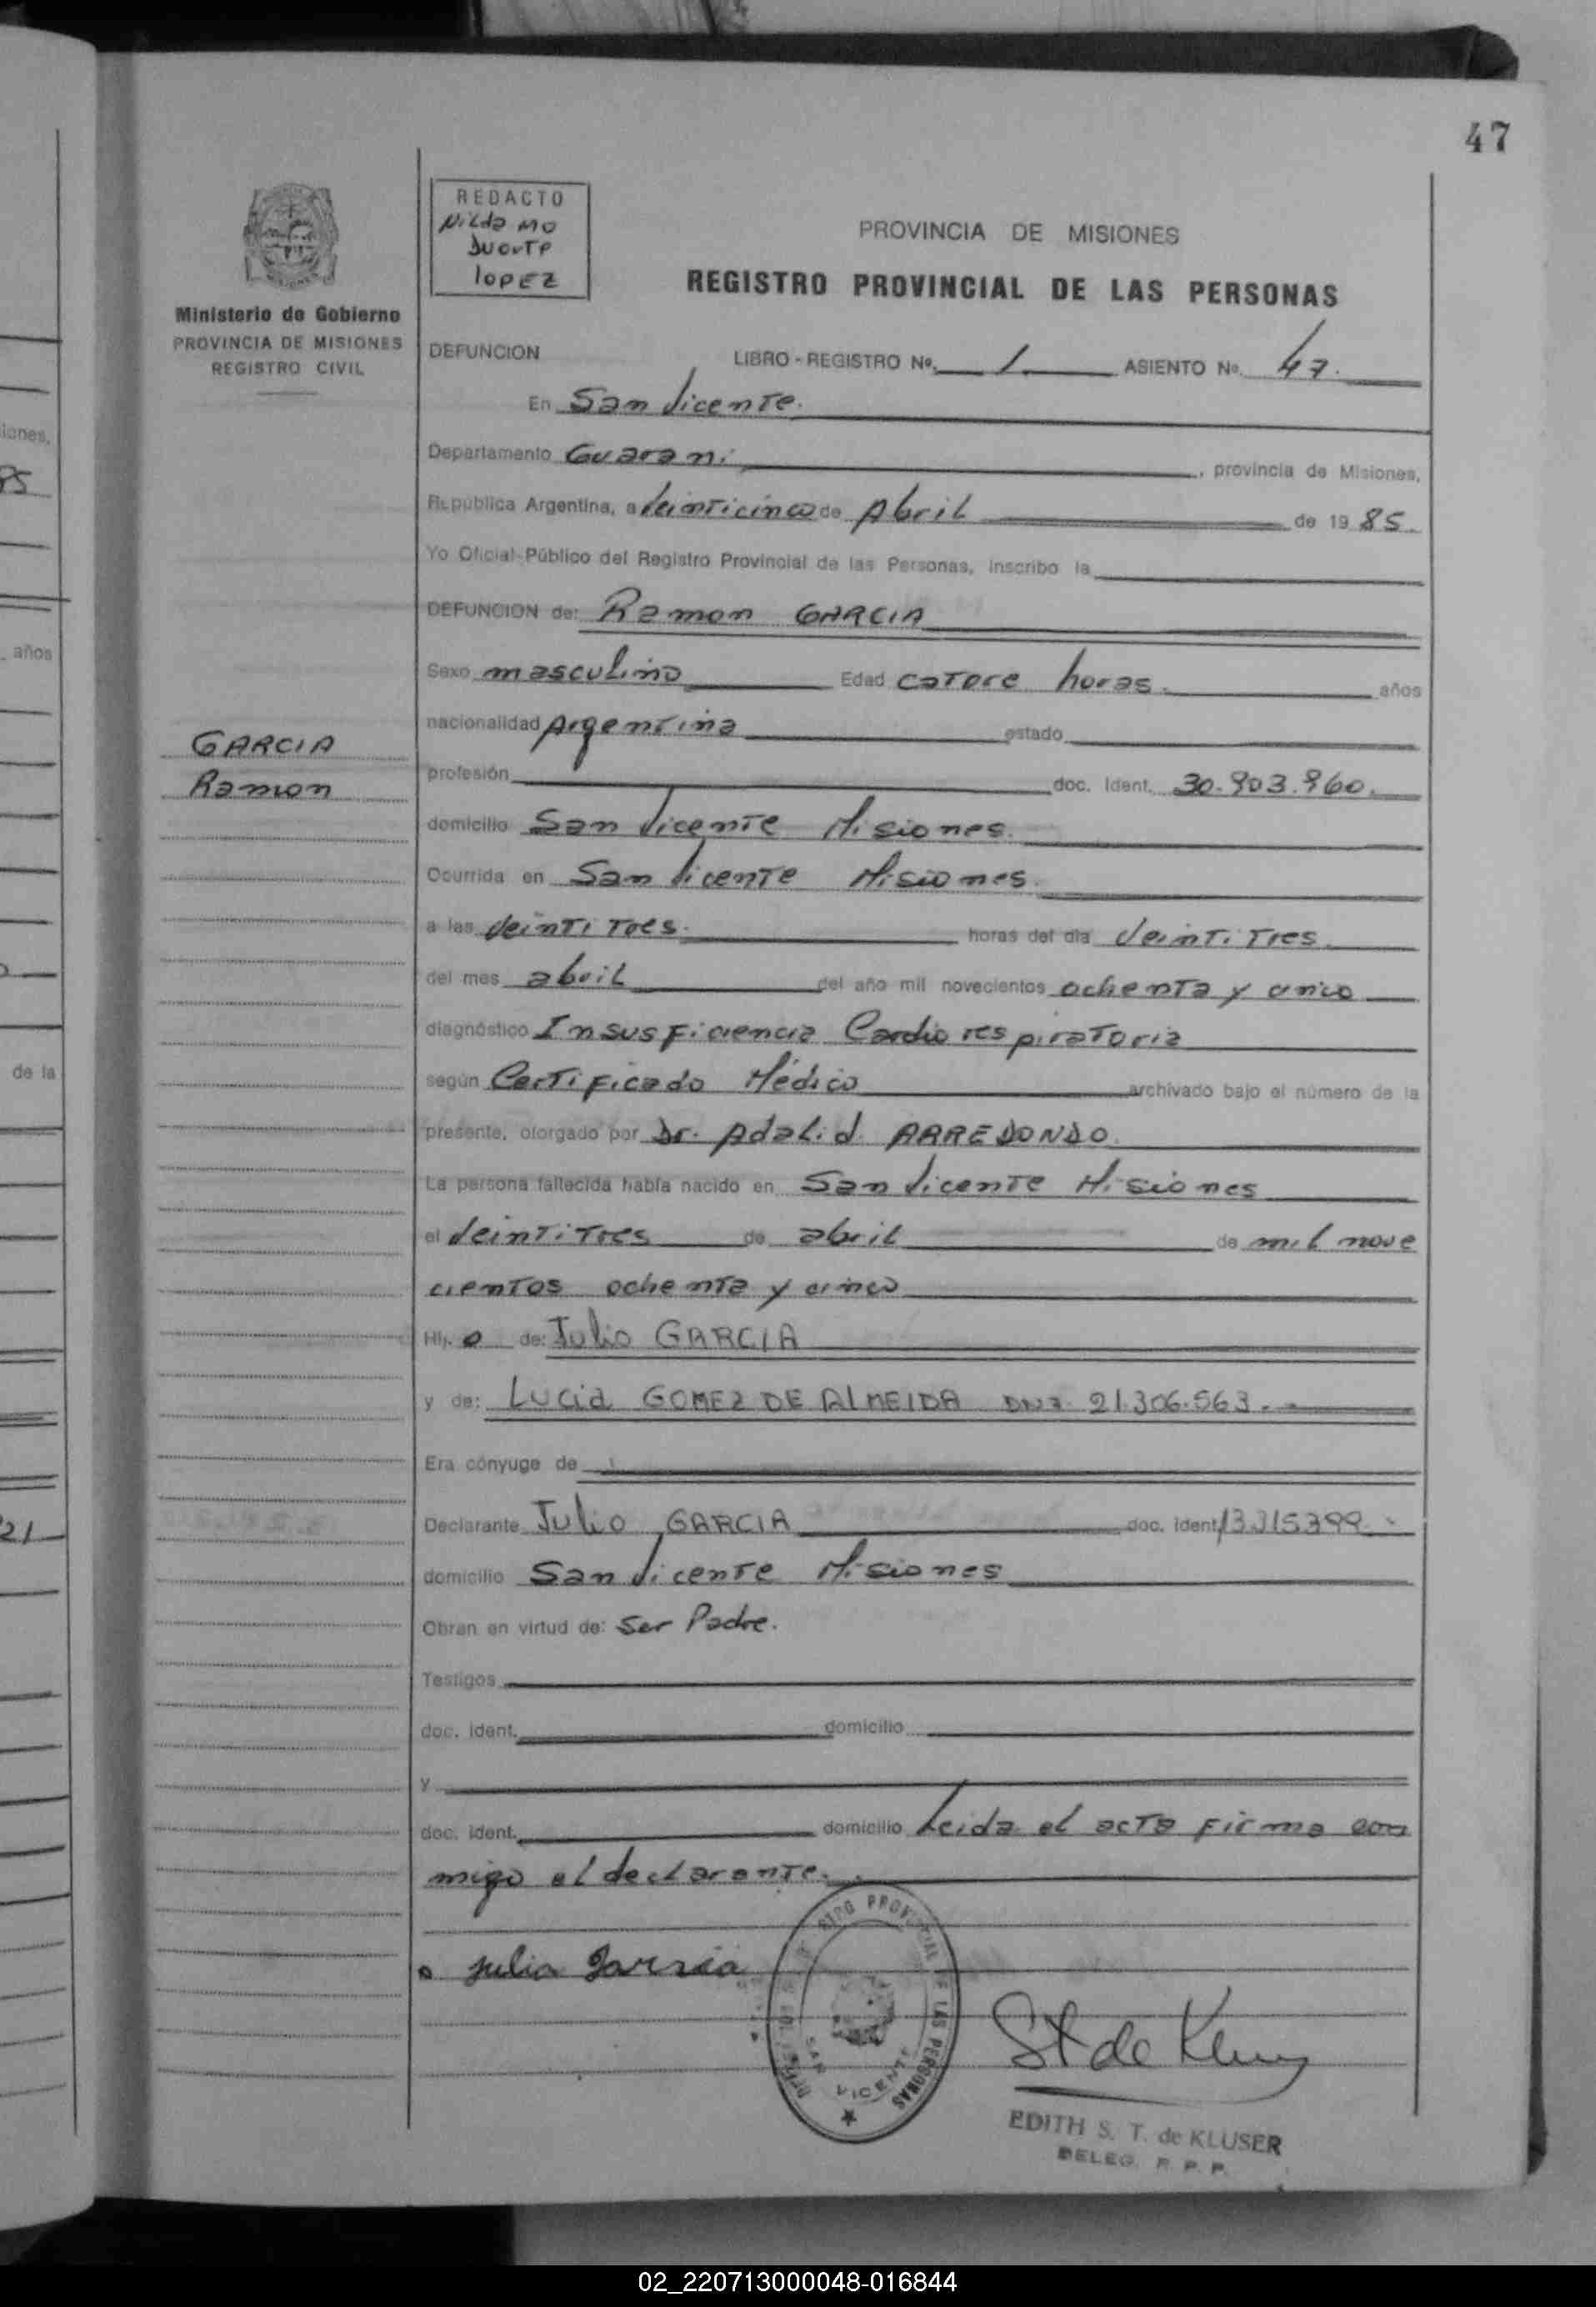 47
REDACTO
Nilda
lopez
PROVINCIA DE MISIONES
REGISTRO PROVINCIAL DE LAS PERSONAS
Ministerio de Gobierno
PROVINCIA DE MISIONES
REGISTRO CIVIL
DEFUNCION LIBRO - REGISTRO Nº. 1 ASIENTO Nº. 47.
En San Vicente.
Departamento Guarani , provincia de Misiones,
República Argentina, a Veinticinco de Abril de 19 85.
Yo Oficial Público del Registro Provincial de las Personas, inscribo la
DEFUNCION de: Ramon GARCIA
Sexo masculino Edad catorce horas. años
nacionalidad Argentina estado
GARCIA
Ramon
profesión doc. Ident. 30.903.960.
domicilio San Vicente Misiones.
Ocurrida en San Vicente Misiones.
a las Veinti Tres. horas del día Veinti Tres
del mes abril del año mil novecientos ochenta y cinco
diagnóstico Insusficiencia Cardio respiratoria
según Certificado Médico archivado bajo el número de la
presente, otorgado por Dr. Adalid ARREDONDO.
La persona fallecida había nacido en San Vicente Misiones
el Veinti Tres de abril de mil nove
cientos ochenta y cinco
Hij. o de: Julio GARCIA
y de: Lucia GOMEZ DE ALMEIDA DNI. 21.306.563.
Era cónyuge de
Declarante Julio GARCIA doc. ident. 13315399
domicilio San Vicente Misiones
Obran en virtud de: Ser Padre.
Testigos
doc. ident. domicilio
y
doc. ident. domicilio Leida el acta firma con
migo el declarante.
julia Garsia
REGISTRO PROVINCIAL DE LAS PERSONAS
SAN VICENTE
EDITH S. T. de KLUSER
DELEG. R. P. P.
iones,
85
años
de la
21
02_220713000048-016844